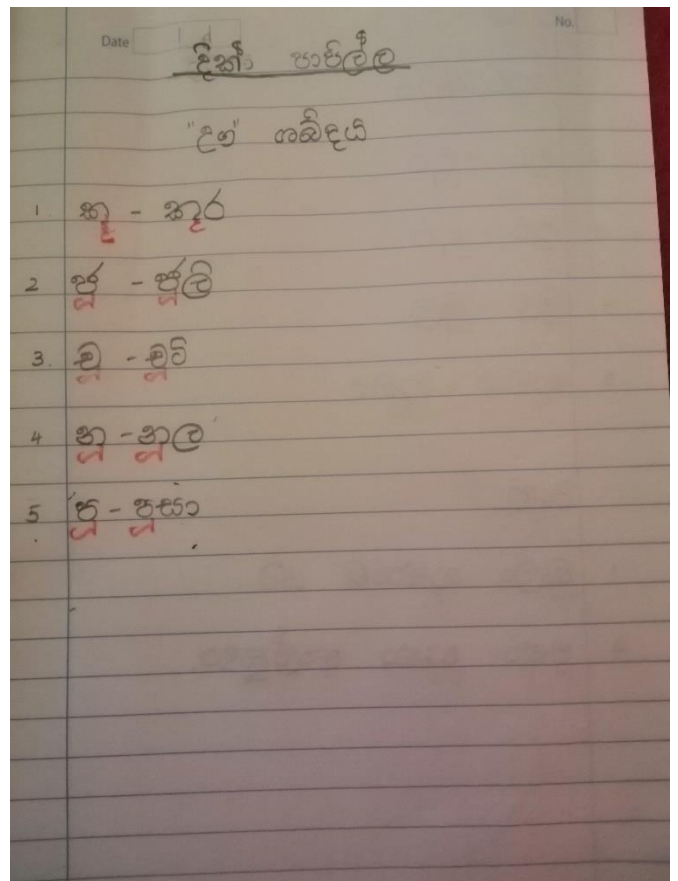 Date
No.
දික් පාපිල්ල
"උග" ශබ්දය
1 කූ - කූර
2 ජූ - ජූලි
3. චූ - චූටි
4 නූ - නූල
5 පූ - පූසා